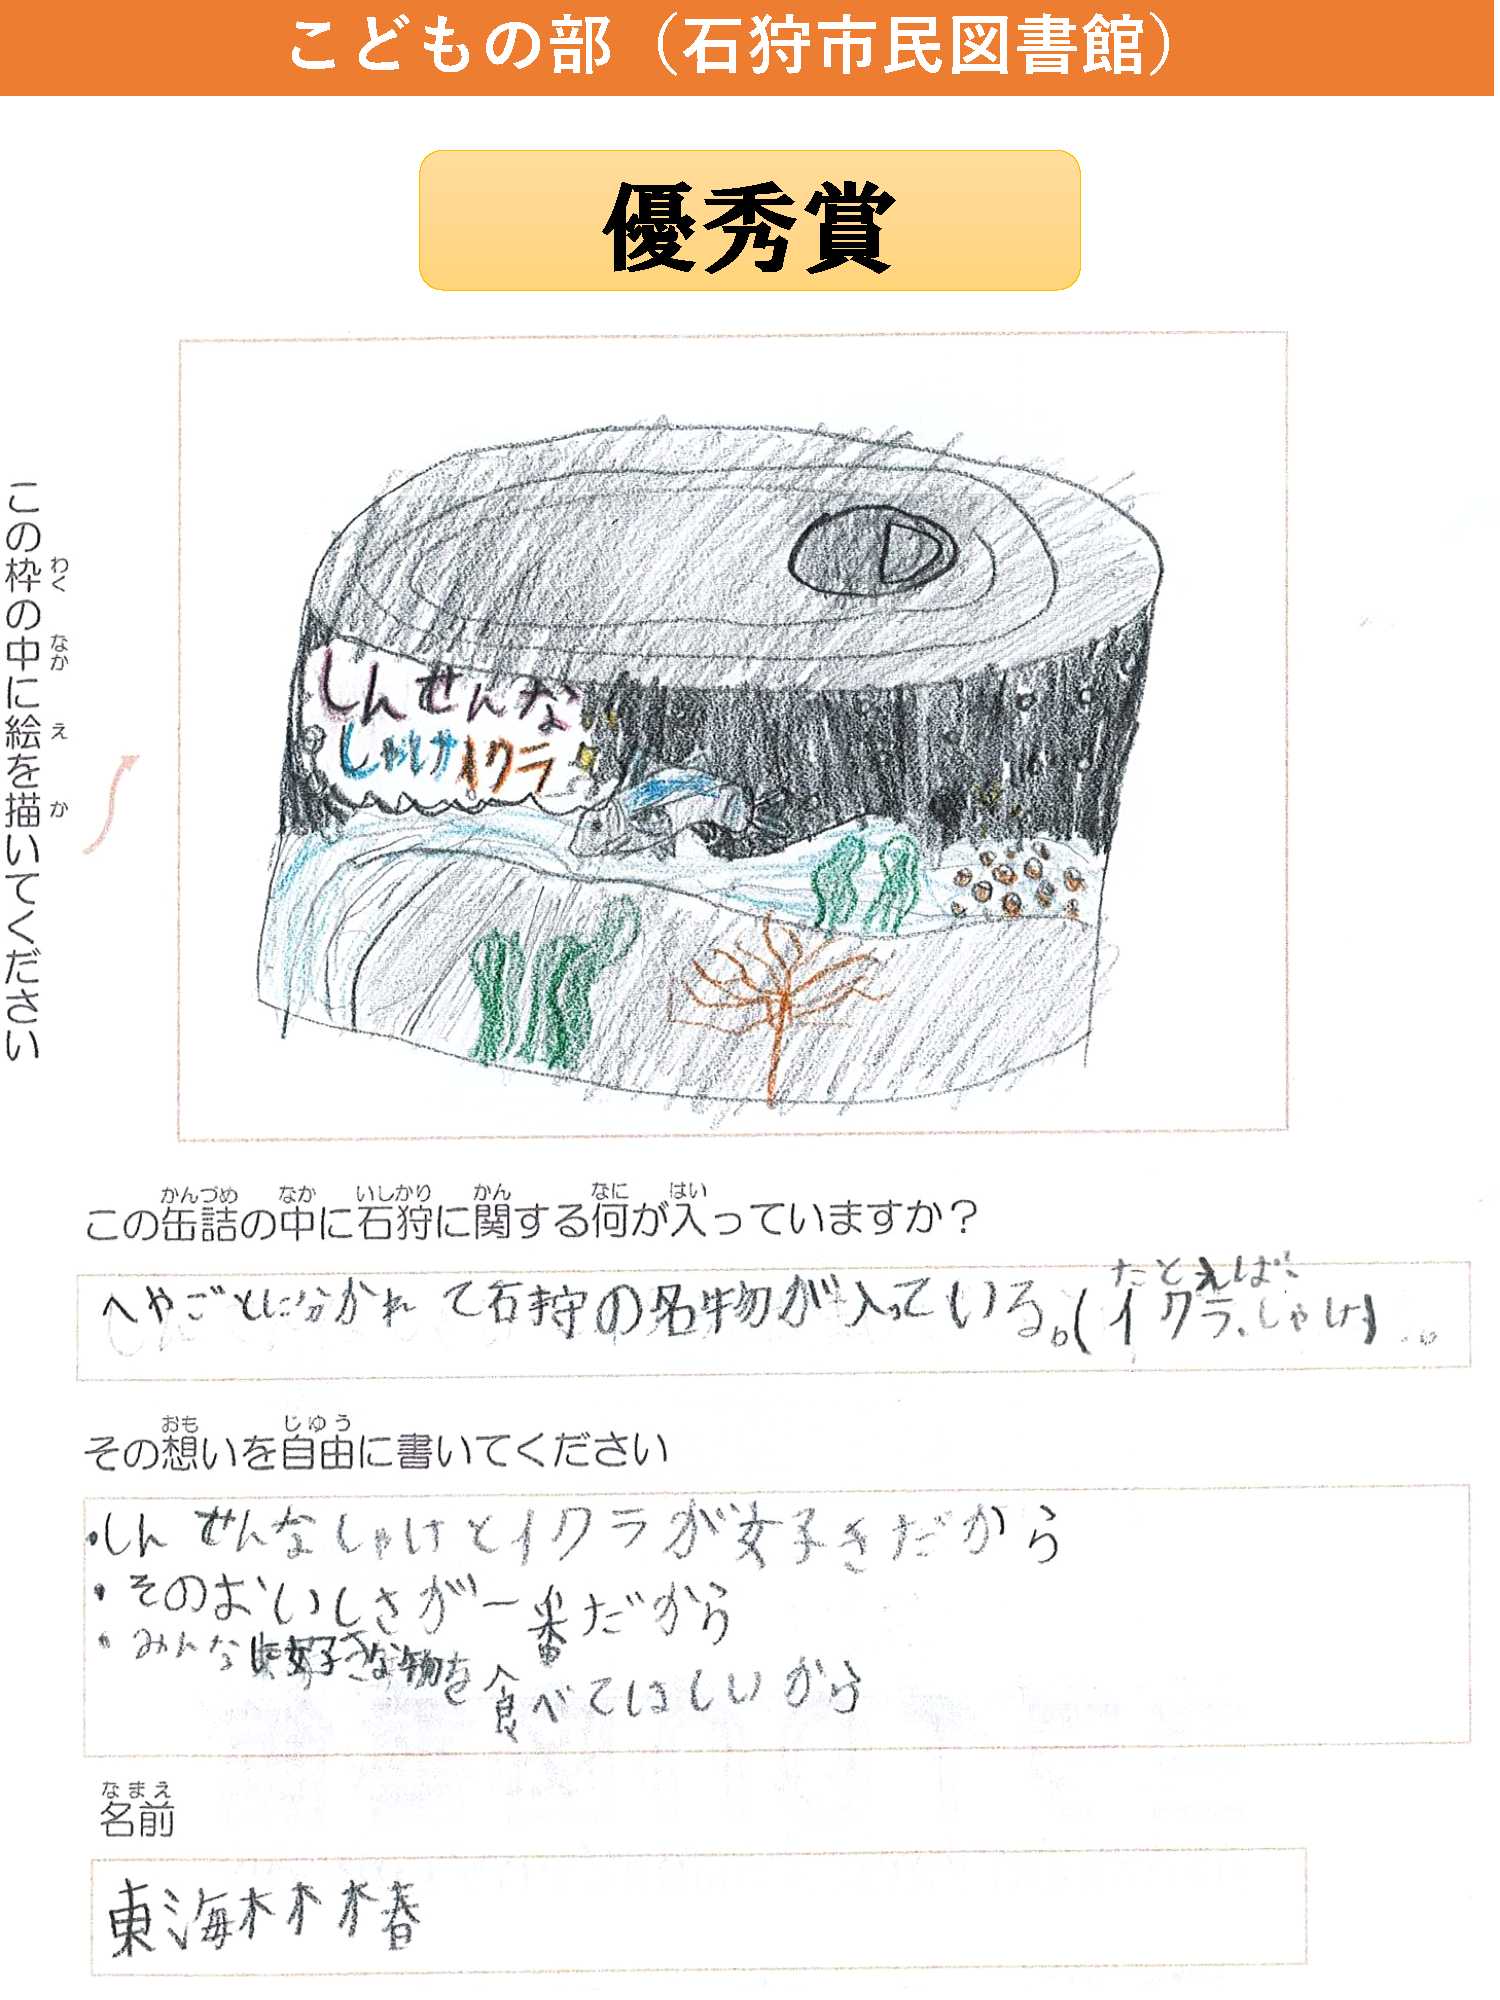 こどもの部（石狩市民図書館）
優秀賞
この枠の中に絵を描いてください
わく なか え か
しんせんな
しゃけイクラ
かんづめ なか いしかり かん なに はい
この缶詰の中に石狩に関する何が入っていますか？
たとえば、
へやごとに分かれて石狩の名物が入っている。(イクラ、しゃけ)
おも じゆう
その想いを自由に書いてください
・しんせんなしゃけとイクラが好きだから
・そのおいしさが一番だから
・みんなに好きな物を食べてほしいから
なまえ
名前
東海林椿